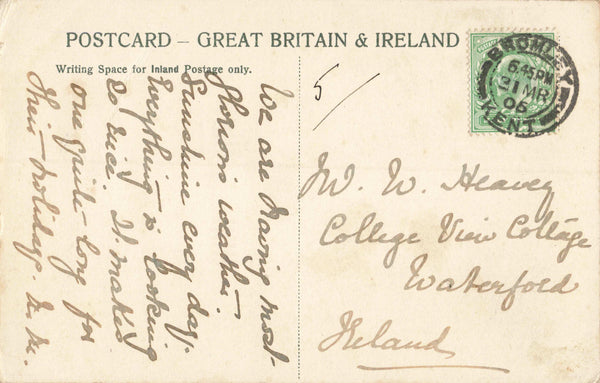 POSTCARD – GREAT BRITAIN & IRELAND
Writing Space for Inland Postage only.
BROMLEY
6.45 PM
31 MR
06
KENT
5/
We are having most
glorious weather.
Sunshine every day.
Everything is looking
so nice. It makes
one quite long for
their holidays.
W. Heavey
College View Cottage
Waterford
Ireland